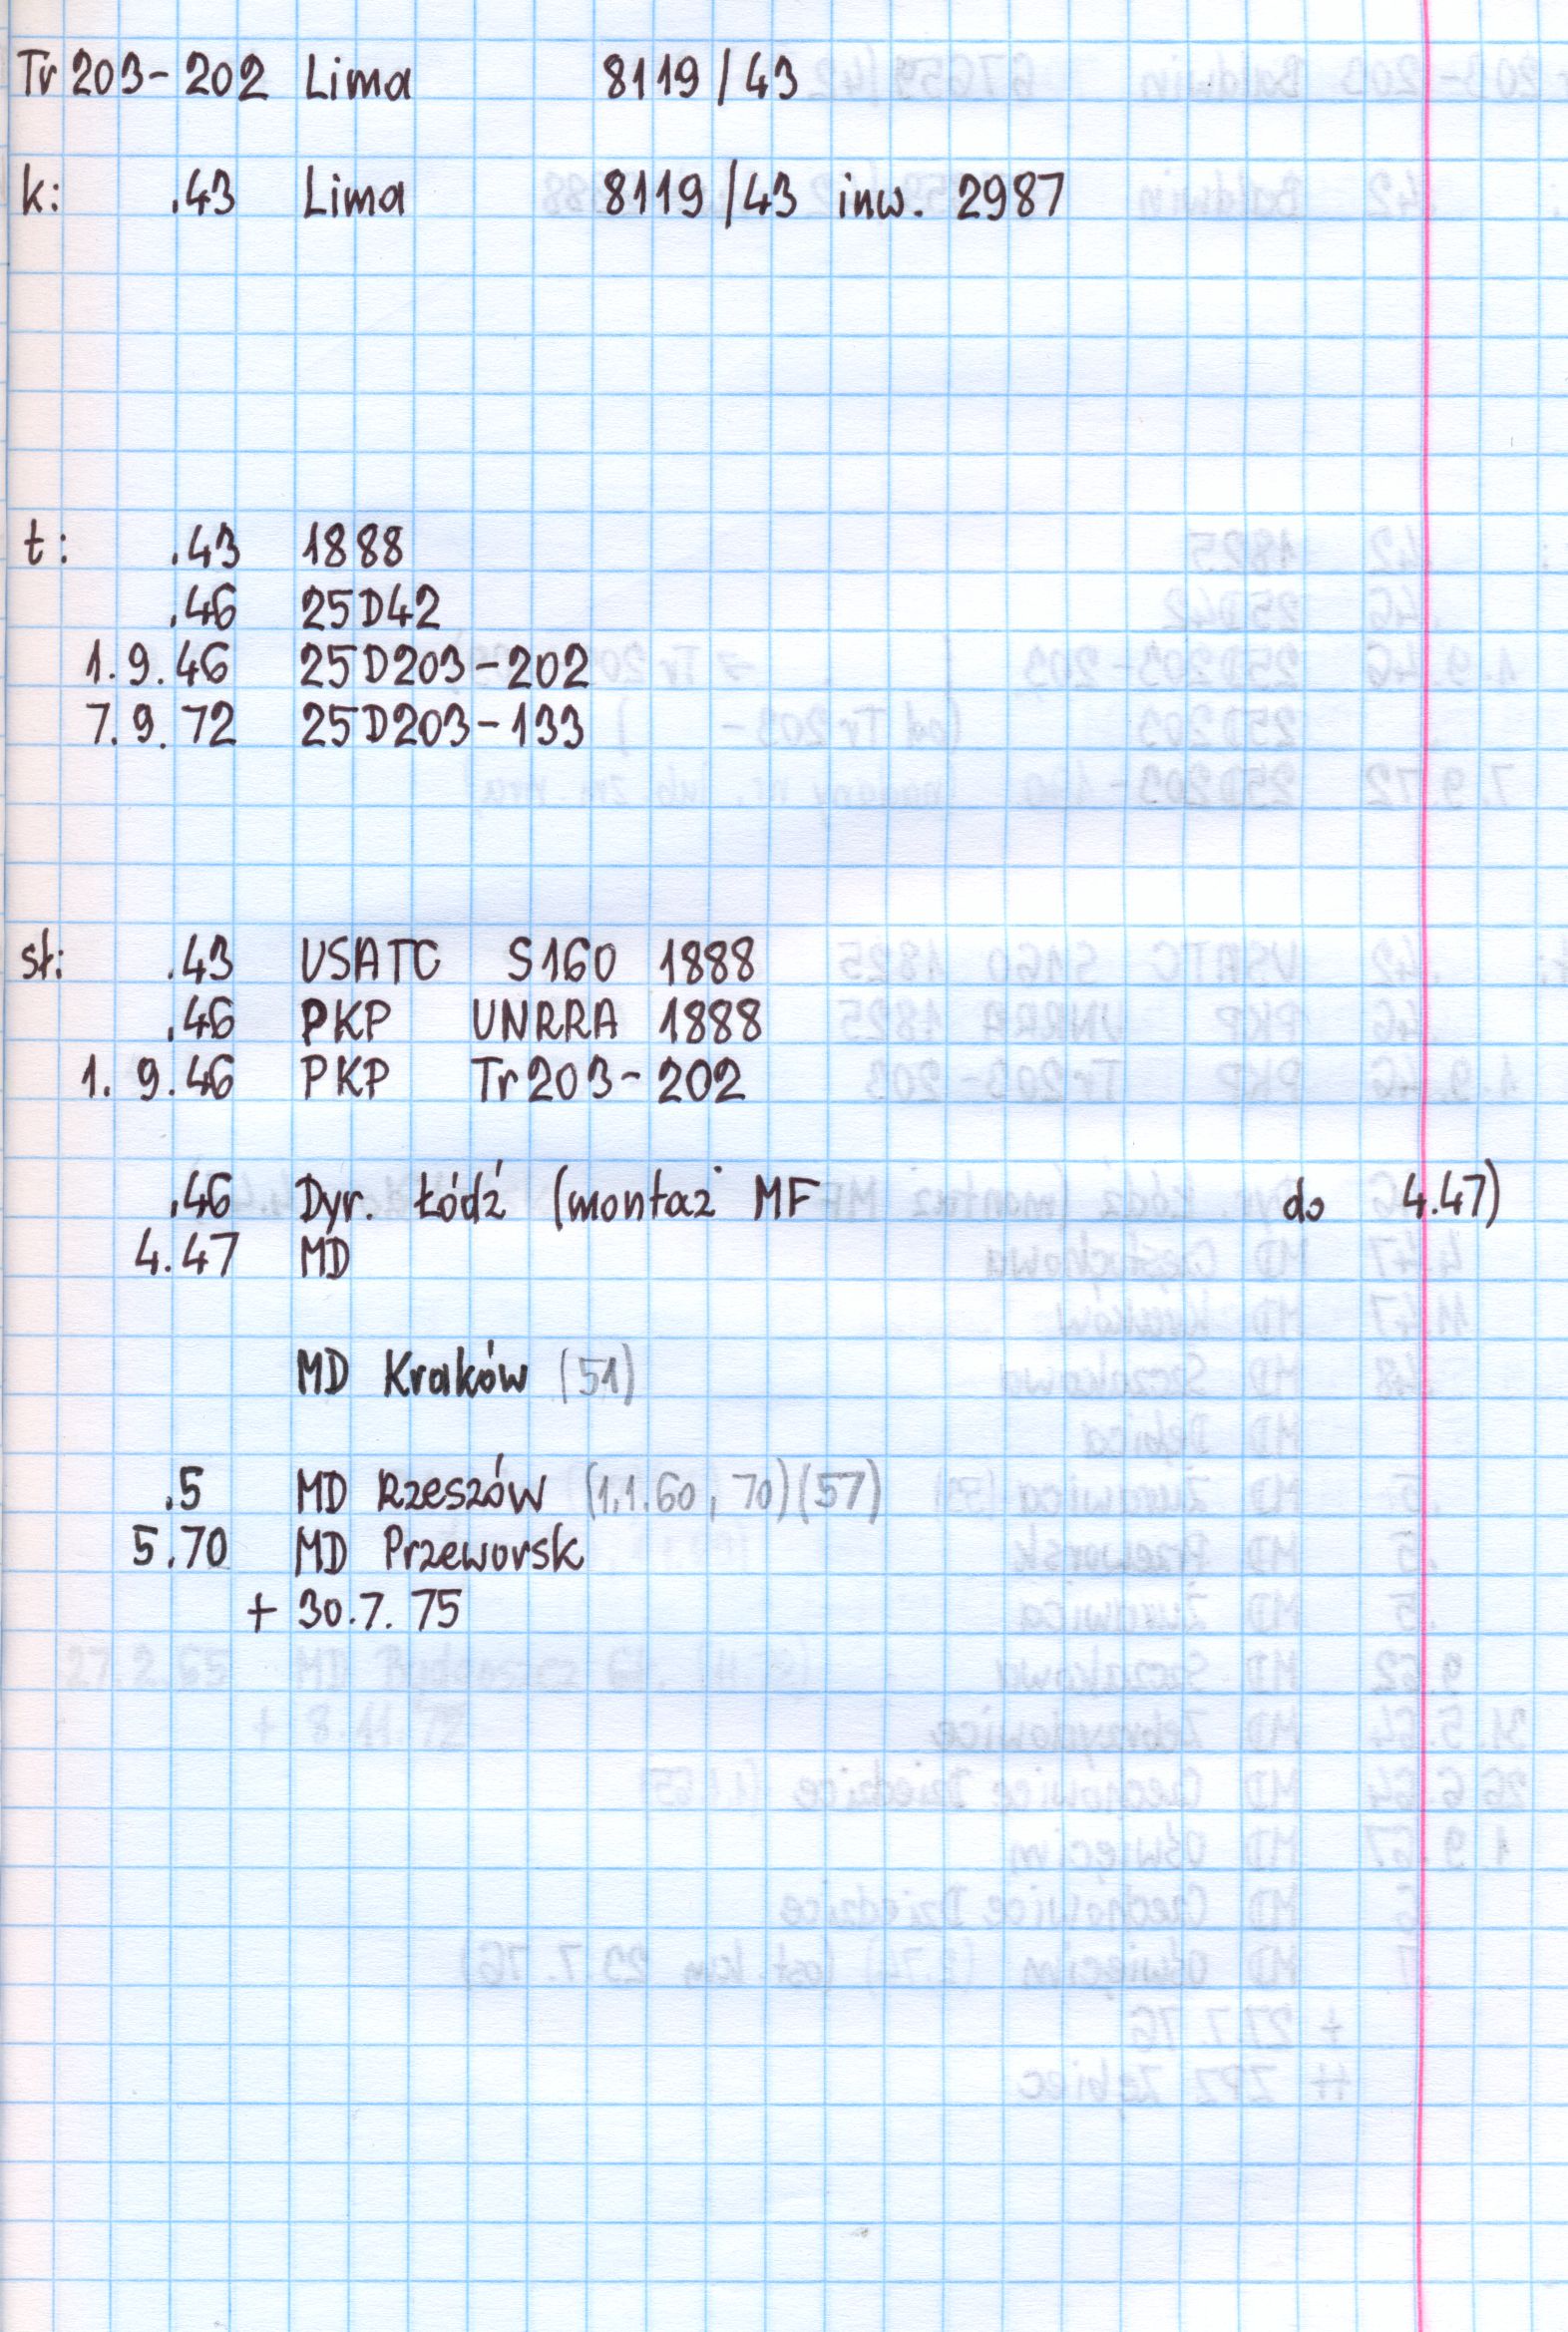 Tr 203-202 Lima 8119/43
k: .43 Lima 8119/43 inw. 2987
t: .43 1888
.46 25D42
1.9.46 25D203-202
7.9.72 25D203-133
st: .43 USATC S160 1888
.46 PKP UNRRA 1888
1.9.46 PKP Tr203-202
.46 Dyr. Łódź (montaż MF do 4.47)
4.47 MD
MD Kraków (51)
.5 MD Rzeszów (1.1.60, 70)(57)
5.70 MD Przeworsk
+ 30.7.75
27.2.65 MD Bydgoszcz Gł.
+ 8.11.72